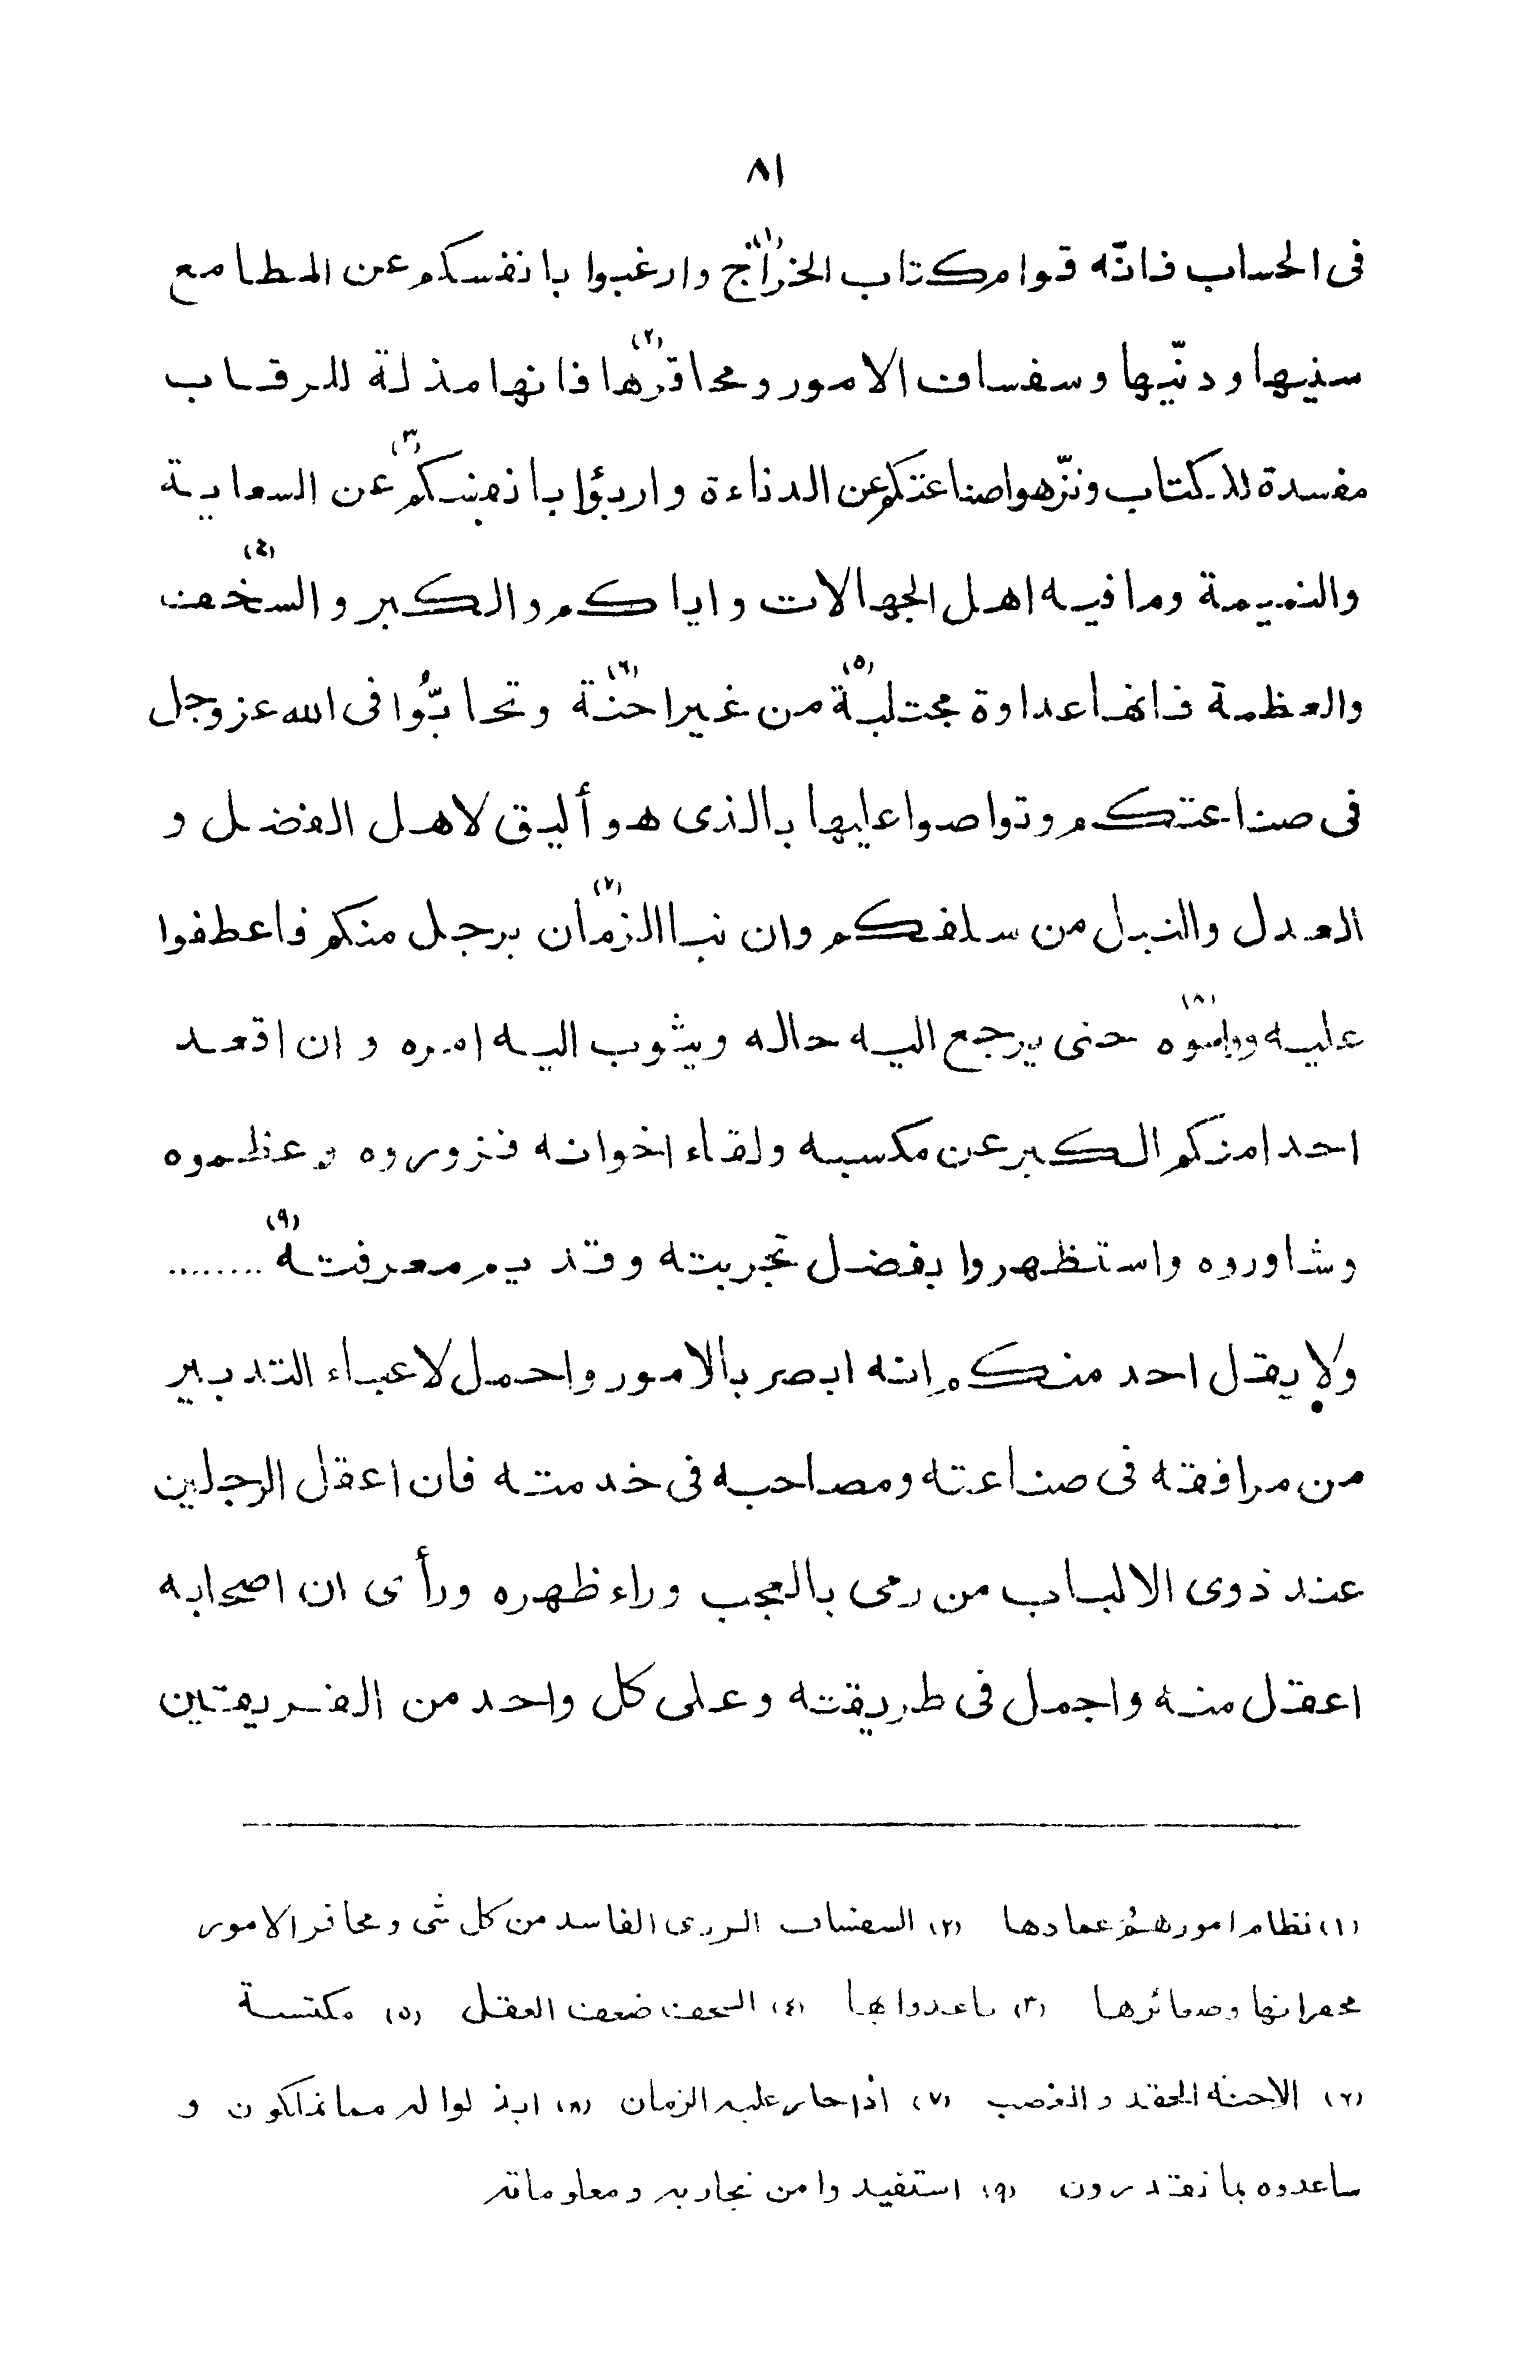 ٨١
فى الحساب فانّه قوام كتاب الخراج(١) وارغبوا بانفسكم عن المطامع
سنيها ودنّيها وسفساف الامور ومحاقرها(٢) فانها مذلة للرقاب
مفسدة للكتاب ونزّهوا صناعتكم عن الدناءة واربؤا بانفسكم(٣) عن السعاية
والنميمة وما فيه اهل الجهالات واياكم والكبر والسخف(٤)
والعظمة فانها عداوة مجتلبة(٥) من غير احنة(٦) وتحابّوا فى الله عز وجل
فى صناعتكم وتواصوا عليها بالذى هو أليق لاهل الفضل و
العدل والنبل من سلفكم وان نبا الزمان(٧) برجل منكم فاعطفوا
عليه وواسوه(٨) حتى يرجع اليه حاله ويثوب اليه امره وان اقعد
احدا منكم الكبر عن مكسبه ولقاء اخوانه فزوروه وعظموه
وشاوروه واستظهروا بفضل تجربته وقديم معرفته(٩) ........
ولا يقل احد منكم انه ابصر بالامور واحمل لاعباء التدبير
من مرافقه فى صناعته ومصاحبه فى خدمته فان اعقل الرجلين
عند ذوى الالباب من رمى بالعجب وراء ظهره ورأى ان اصحابه
اعقل منه واجمل فى طريقته وعلى كل واحد من الفريقين
(١) نظام امورهم عمادها (٢) السفساف الردى الفاسد من كل شى ومحاقر الامور
محقراتها وصغائرها (٣) باعدوا بها (٤) السخف ضعف العقل (٥) مكتسبة
(٦) الاحنة الحقد والغضب (٧) اذا جار عليه الزمان (٨) ابذلوا له مما تملكون و
ساعدوه بما تقدرون (٩) استفيدوا من تجاربه ومعلوماته